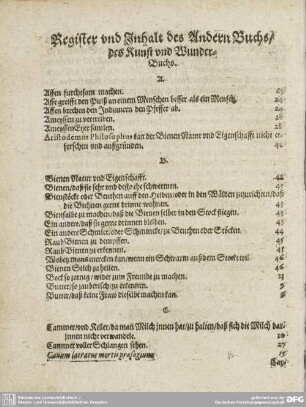 Register vnd Inhalt des Andern Buchs/
des Kunst vnd Wunder-
Buchs.
A.
Affen furchtsam machen. 23
Affe greifft den Pulß an einem Menschen besser als ein Mensch. 24
Affen brechen den Indianern den Pfeffer ab. 24
Ameyssen zu vertreiben. 28
Ameyssen Eyer samlen. 28
Aristodemus Philosophus hat der Bienen Natur vnd Eigenschafft nicht er-
forschen vnd außgründen. 42
B.
Bienen Natur vnd Eigenschafft. 42
Bienen/ daß sie sehr vnd desto ehe schwermen. 43
Bienstöcke oder Beuthen auff den Heiden/ oder in den Wälden zuzurichten/ daß
die Bienen gerne drinne wohnen. 43
Biensalbe zu machen/ daß die Bienen selber in den Stock fliegen. 43
Ein andere/ daß sie gerne drinnen bleiben. 43
Ein andere Schmier/ oder Schmincke/ zu Beuthen oder Stöcken. 44
Raub Bienen zu dempffen. 45
Raub Bienen zu erkennen. 45
Wobey mans mercken kan/ wenn ein Schwarm auß dem Stock wil. 46
Bienen Stich zu heilen. 46
Bock so zornig/ wider zum Freunde zu machen. 13
Butter/ so zaubersch/ zu erkennen. 5
Butter/ daß keine Fraw dieselbe machen kan. 5
C.
Cammer/ vnd Keller/ da man Milch innen hat/ zu halten/ daß sich die Milch dar-
innen nicht verwandele. 10
Cammer voller Schlangen sehen. 27
Canum latratus mortis præsagium 15